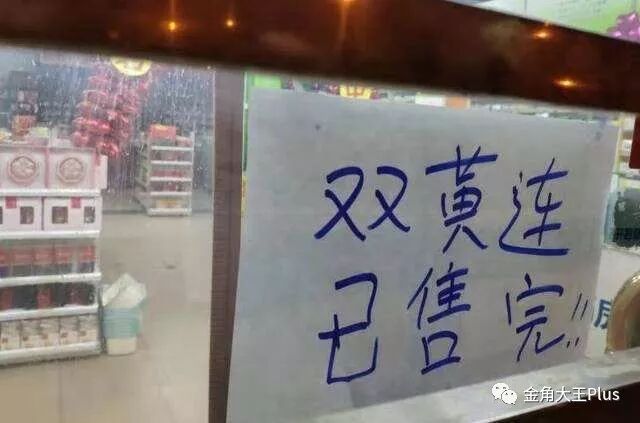 双黄连
已售完!!
金角大王Plus